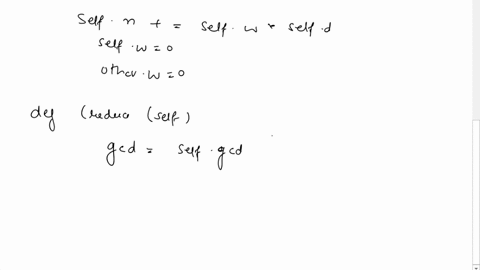 Self. n + = self. w * self. d
self. w = 0
other. w = 0
def (reduce (self)
gcd = self. gcd